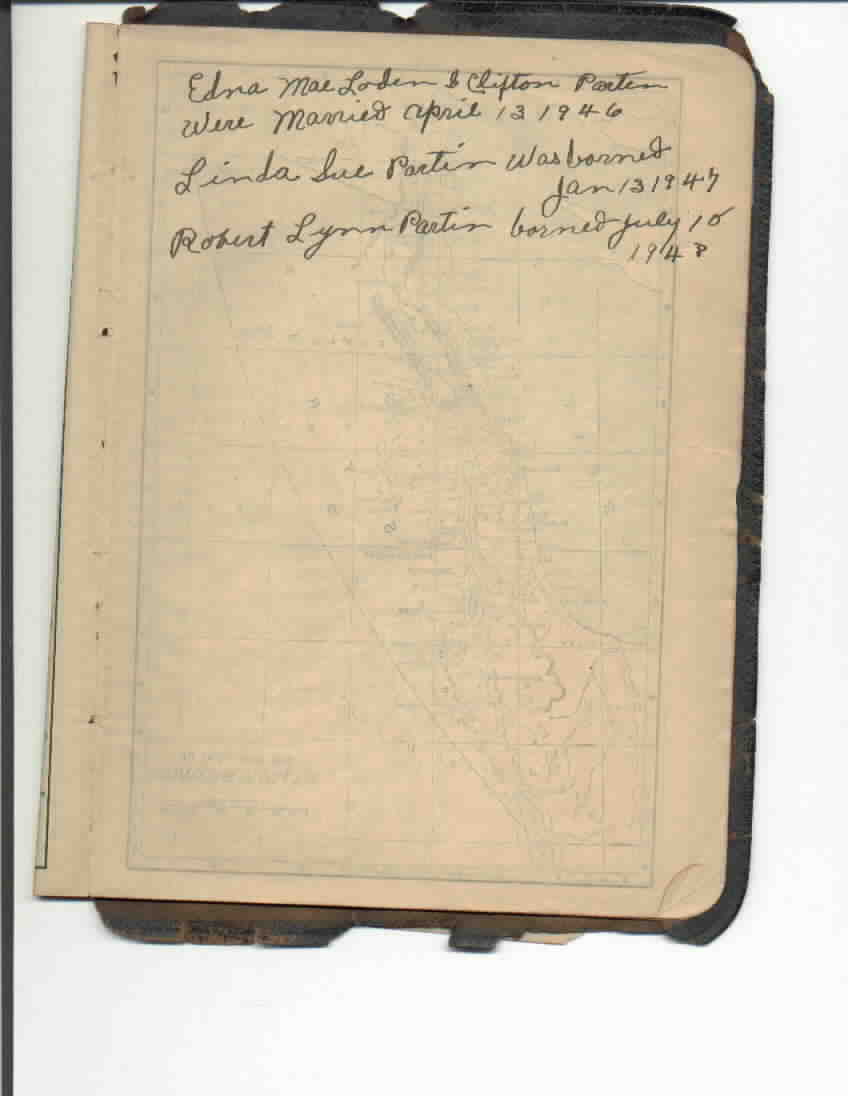 Edna Mae Loden & Clifton Partin
Were Married April 13 1946
Linda Sue Partin Was borned
Jan 13 1947
Robert Lynn Partin borned July 10
1948